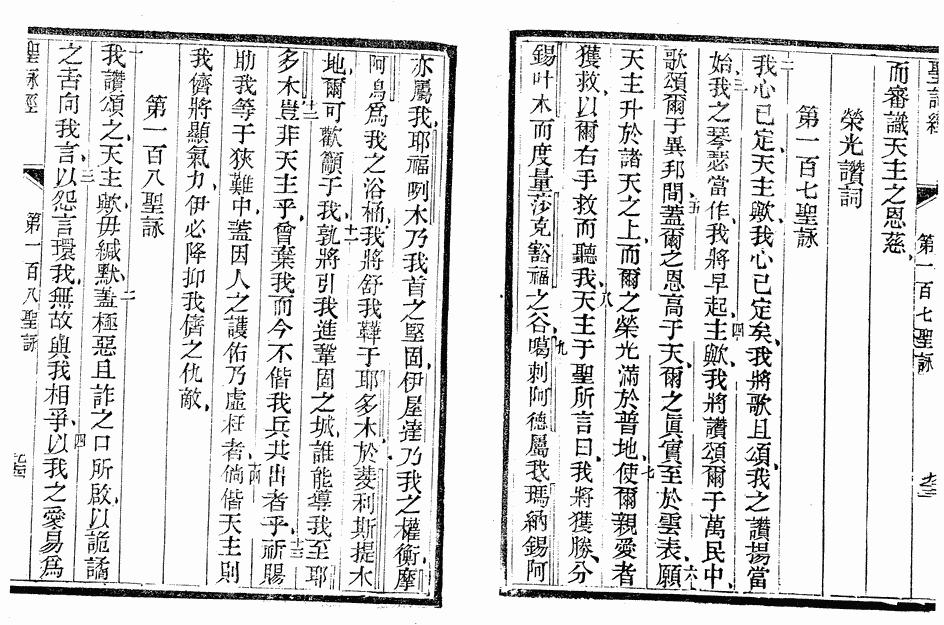 聖詠經
第一百七聖詠
而審識天主之恩慈
榮光讚詞
第一百七聖詠
二我心已定天主歟我心已定矣我將歌且頌我之讚揚當
始三我之琴瑟當作我將早起四主歟我將讚頌爾于萬民中
歌頌爾于異邦間五蓋爾之恩高于天爾之眞實至於雲表六願
天主升於諸天之上而爾之榮光滿於普地七使爾親愛者
獲救以爾右手救而聽我八天主于聖所言曰我將獲勝分
錫叶木而度量莎克豁福之谷九噶剌阿德屬我瑪納錫阿
亦屬我耶福咧木乃我首之堅固伊屋達乃我之權衡十摩
阿烏爲我之浴桶我將舒我鞾于耶多木於菱利斯提木
地爾可歡籲于我十一孰將引我進鞏固之城誰能導我至耶
多木十二豈非天主乎曾棄我而今不偕我兵共出者乎十三祈賜
助我等于狹難中蓋因人之護佑乃虛枉者十四倘偕天主則
我儕將顯氣力伊必降抑我儕之仇敵
第一百八聖詠
一我讚頌之天主歟毋緘默二蓋極惡且詐之口所啟以詭譎
之舌向我言三以怨言環我無故與我相爭四以我之愛易爲
聖詠經
第一百八聖詠